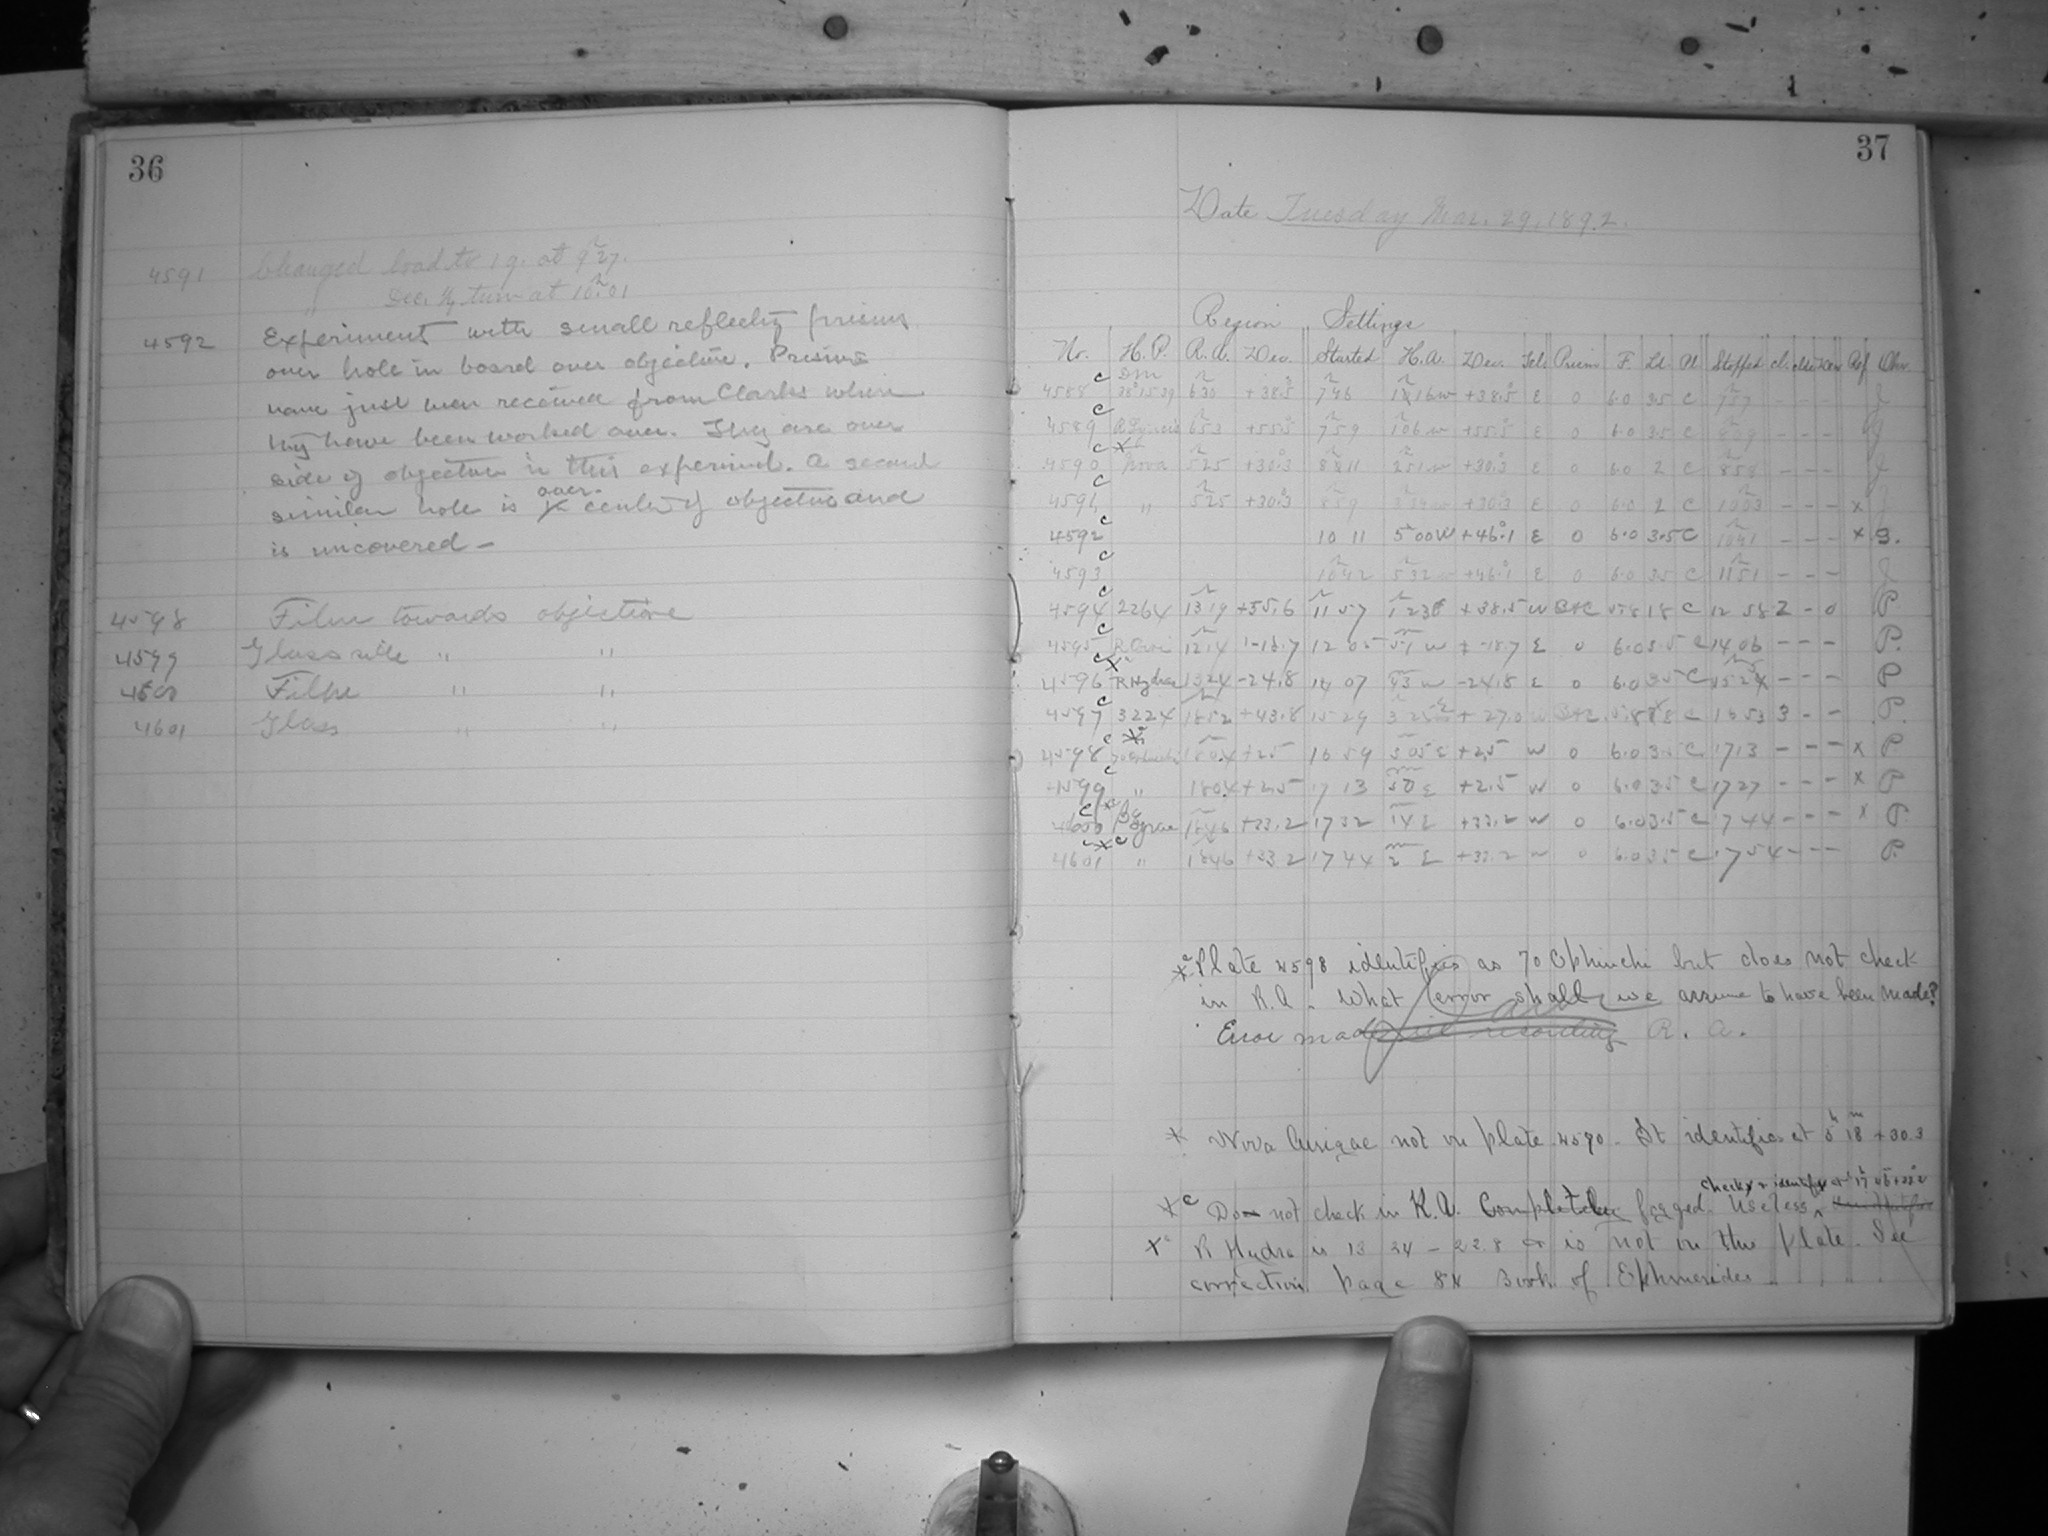 36
4591 Changed load to 1 g. at 9 27.
" Dec. turn at 10.01
4592 Experiment with small reflectg prisms
over hole in board over objective. Prisms
have just been received from Clarks where
they have been worked over. They are over
side of objective in this experiment. A second
similar hole is over center of objective and
is uncovered —
4598 Film towards objective
4599 Glass side " "
4600 Film " "
4601 Glass " "
37
Date Tuesday Mar. 29, 1892.
Region Settings
No. H.P. R.A. Dec. Started H.A. Dec. Tel. Prism F. Ld. Pl Stopped cl. Ref Obs.
4588 DM 38°1539 6 30 +38.5 7 46 +38.5 E 0 6.0 3.5 C 7 57 - - - J
4589 6 53 +55.5 7 59 1 06 w +55.5 E 0 6.0 3.5 C - - - J
4590 Nova 5 25 +30.3 8 11 2 51 w +30.3 E 0 6.0 2 C 8 58 - - - J
4591 " 5 25 +30.3 8 59 +30.3 E 0 6.0 2 C 10 03 - - - x J
4592 10 11 5 00 W +46.1 E 0 6.0 3.5 C 10 41 - - - x
4593 10 42 5 32 w +46.1 E 0 6.0 3.5 C 11 51 - - - J
4594 2264 13 19 +55.6 11 57 +38.5 w B+C 5.8 18 C 12 58 2 - 0 P.
4595 12 14 -18.7 51 w -18.7 E 0 6.0 3.5 C 14 06 - - - P.
4596 R Hydrae 13 24 -24.8 14 07 43 w -24.8 E 0 6.0 3.5 C 15 24 - - - P
4597 3224 18 52 +43.8 15 29 + 27.0 W 5.8 C 16 53 3 - - P.
4598 18 04 +2.5 16 59 +2.5 w 0 6.0 3.5 C 17 13 - - - x P
4599 " 18 04 +2.5 17 13 50 E +2.5 w 0 6.0 3.5 C 17 27 - - - x P
4600 β Lyrae 18 46 +33.2 17 32 14 E +33.2 w 0 6.0 3.5 C 17 44 - - - x P.
4601 " 18 46 +33.2 17 44 2 E +33.2 w 0 6.0 3.5 C 17 54 - - - P.
Plate 4598 identifies as 70 Ophiuchi but does not check
in R.A. What error shall we assume to have been made?
Error made in recording R. A.
* Nova Aurigae not on plate 4590. It identifies at 5h 18m +30.3
Do not check in R.A. Completely fogged. Useless
R Hydra is 13 24 - 22.8 & is not on the plate. See
correction page 84 Book of Ephemerides